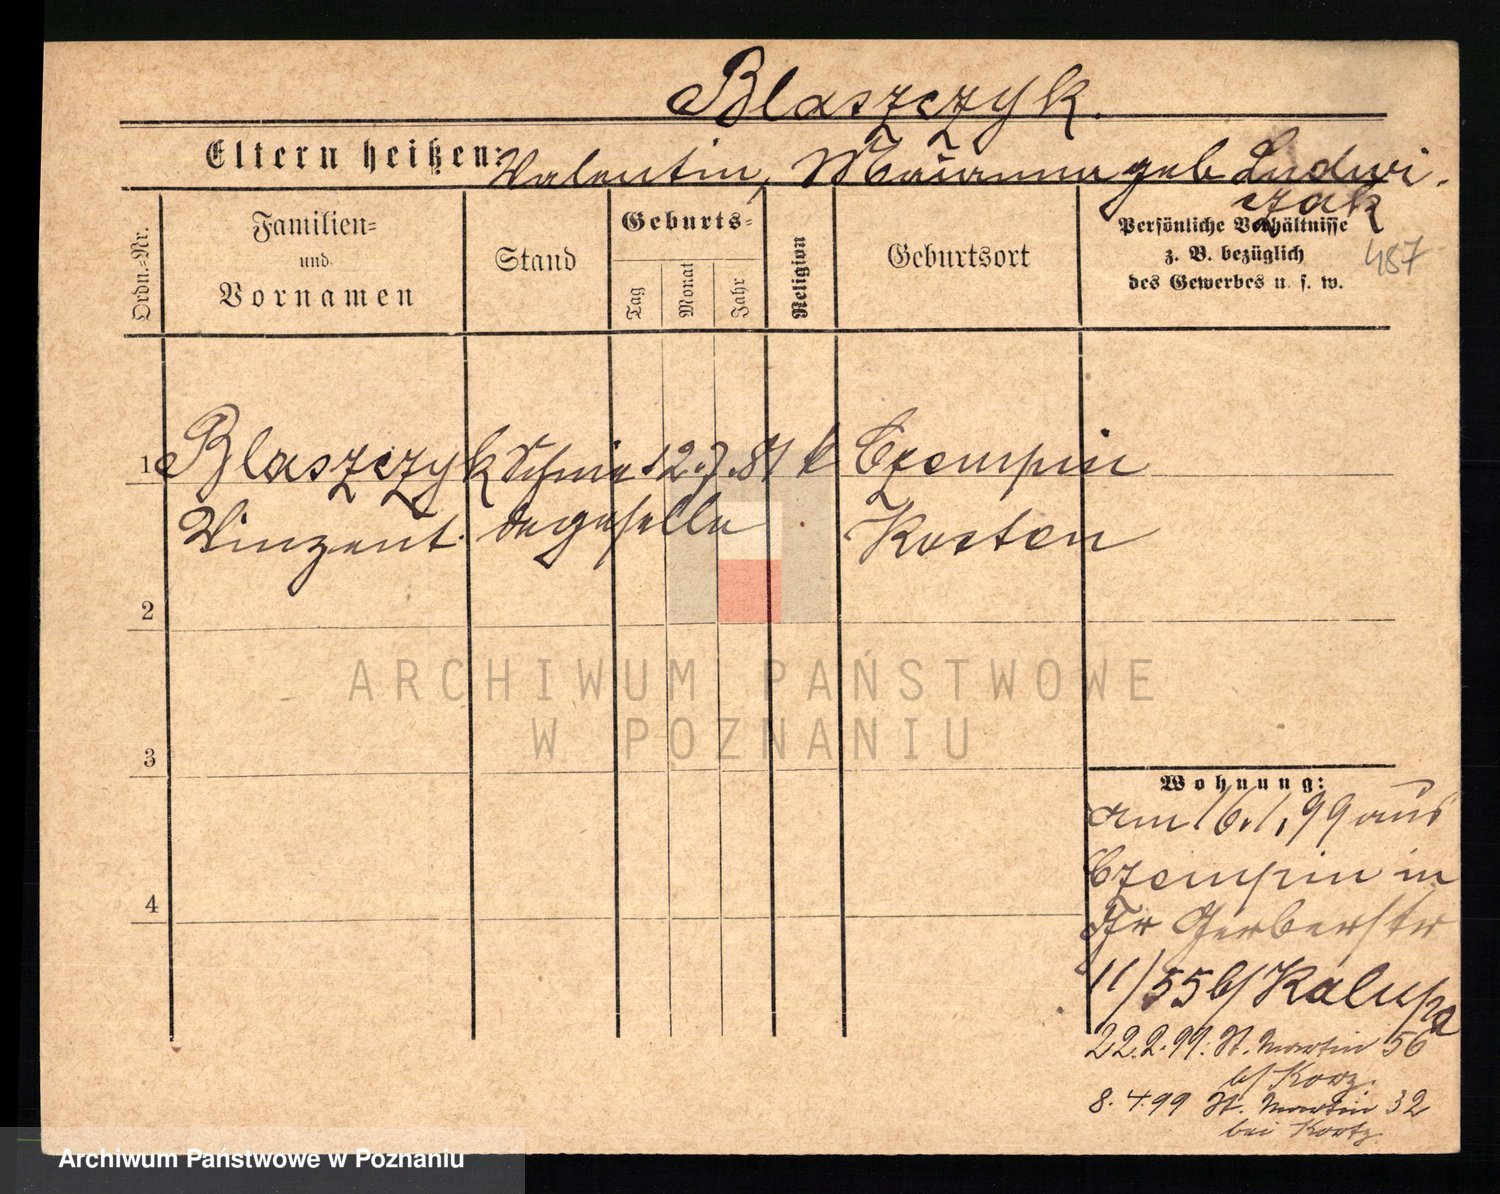 Blaszczyk.
Eltern heißen: Valentin, Marianna geb Ludwi-
czak
Ordn.-Nr.
Familien-
und
Vornamen
Stand
Geburts-
Tag
Monat
Jahr
Religion
Geburtsort
Persönliche Verhältnisse
z. B. bezüglich
des Gewerbes u. s. w.
487
1 Blaszczyk Schmie 12.7.81 k Czempin
Vinzent. degeselle Kosten
2
ARCHIWUM PAŃSTWOWE
W POZNANIU
3
4
Wohnung:
am 16.1.99 aus
Czempin in
Gerberstr
11/55 b/ Kalupa
22.2.99. St. Martin 56
b/
8.4.99 St. Martin 32
bei
Archiwum Państwowe w Poznaniu